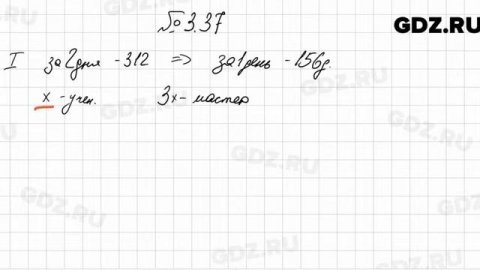 GDZ.RU
№ 3.37
I за 2 дня - 312 => за 1 день - 156 д.
x - учен. 3x - мастер
GDZ.RU
GDZ.RU
GDZ.RU
GDZ.RU
GDZ.RU
GDZ.RU
GDZ.RU